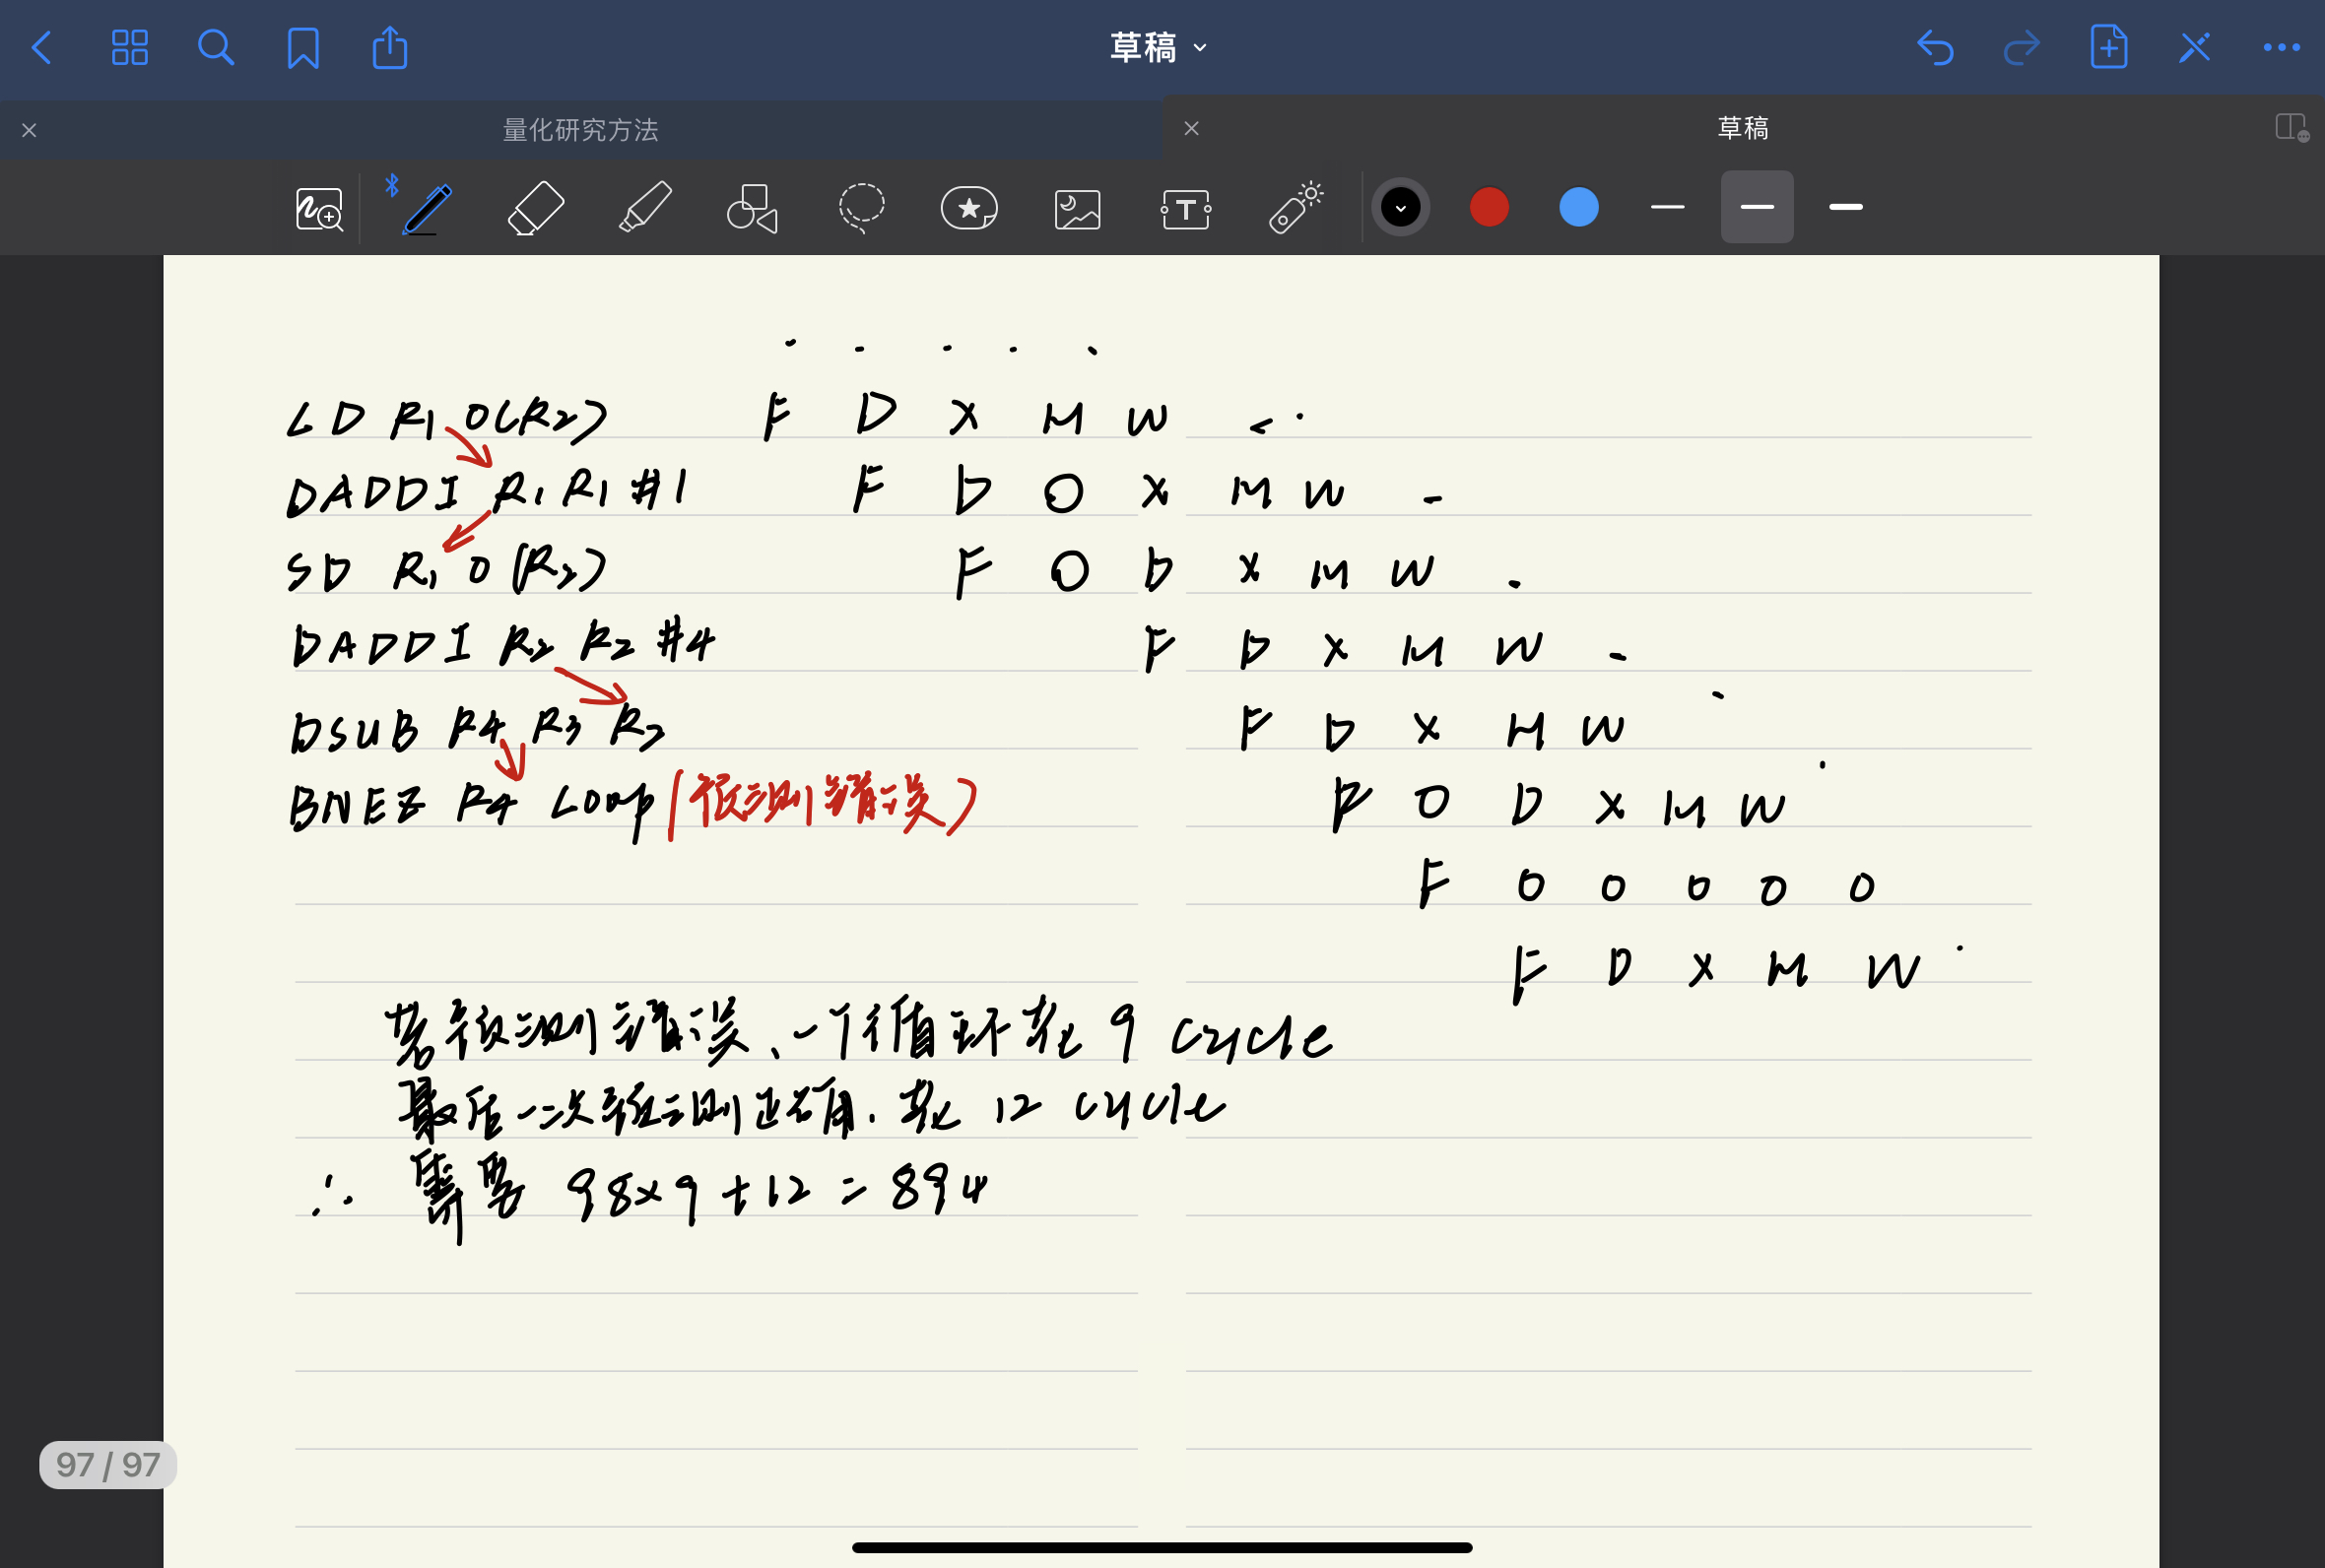 草稿
量化研究方法
草稿
T
LD R1 0(R2) F D X M W
DADDI R1 R1 #1 F D O X M W
SD R1 0(R2) F O D X M W
DADDI R2 R2 #4 F D X M W
DSUB R4 R3 R2 F D X M W
BNEZ R4 Loop (预测错误) F O D X M W
F O O O O O
F D X M W
若预测错误、一个循环花 9 cycle
最后一次预测正确. 花 12 cycle
∴ 需要 98×9+12=894
97 / 97